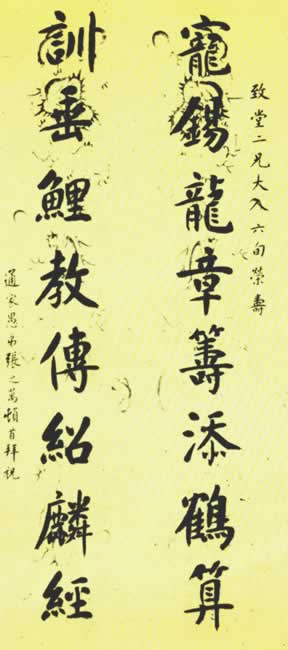 致堂二兄大人六旬榮壽
寵錫龍章籌添鶴算
訓垂鯉教傳紹麟經
通家愚弟張之萬頓首拜祝